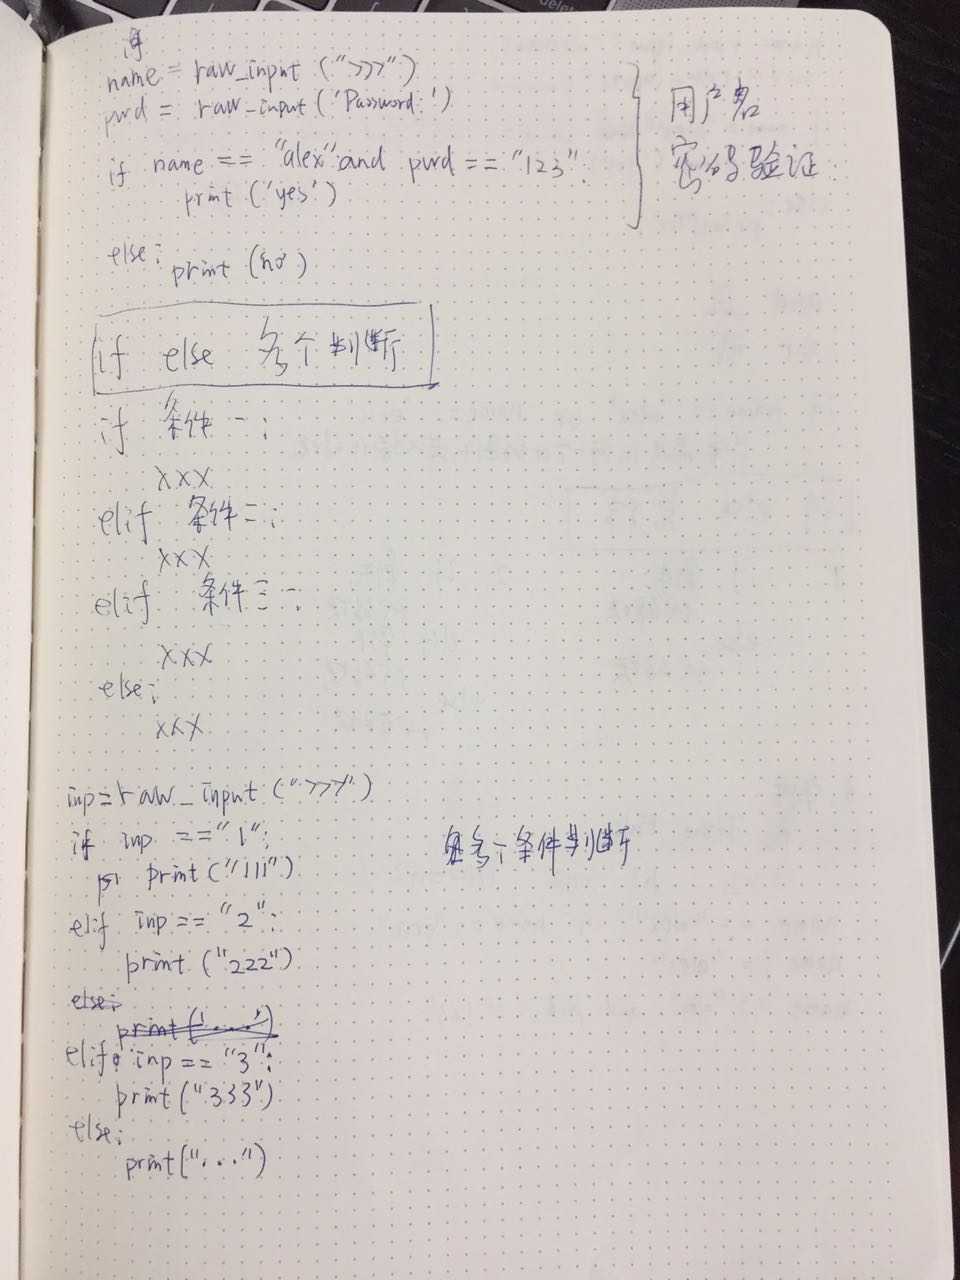 name = raw_input (">>>")
pwd = raw_input ('Password:')
用户名
密码验证
if name == "alex" and pwd == "123":
print ('yes')
else:
print ('no')
if else 多个判断
if 条件一:
xxx
elif 条件二:
xxx
elif 条件三:
xxx
else:
xxx
inp = raw_input (">>>")
if inp == "1":
多个条件判断
print ("111")
elif inp == "2":
print ("222")
else:
print ('....')
elif inp == "3":
print ("333")
else:
print ("...")